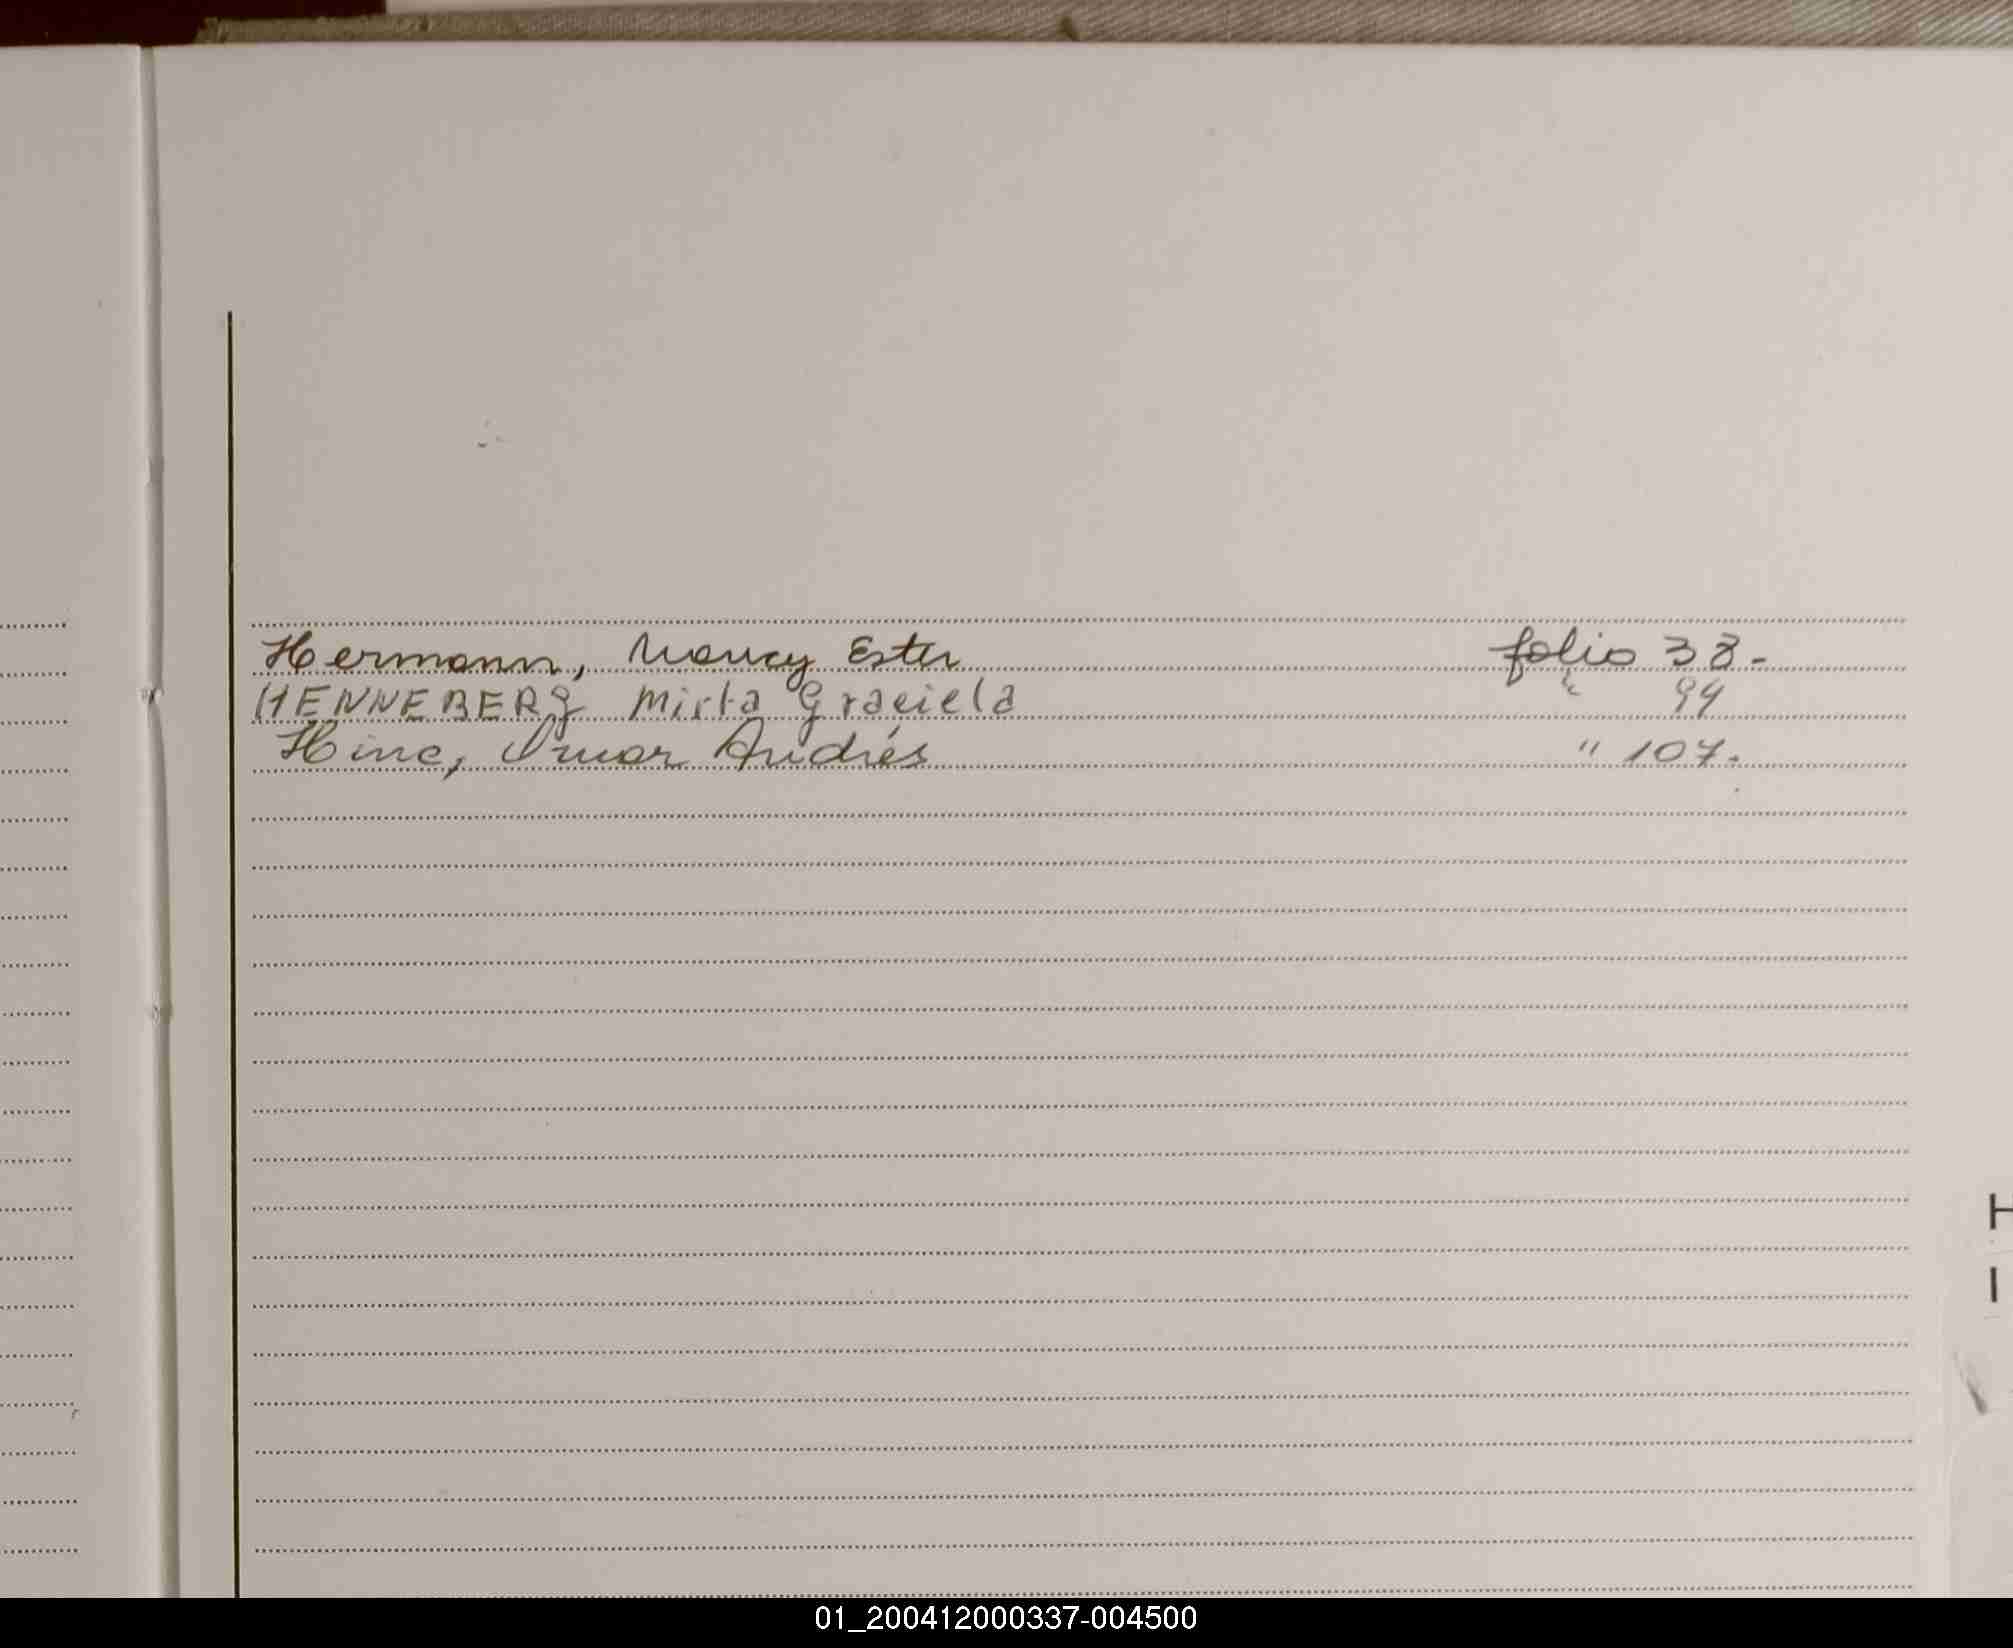 Hermann, Nancy Ester folio 38.-
HENNEBERG Mirta Graciela " 94
Hinc, Omar Andrés " 107.
H
I
01_200412000337-004500